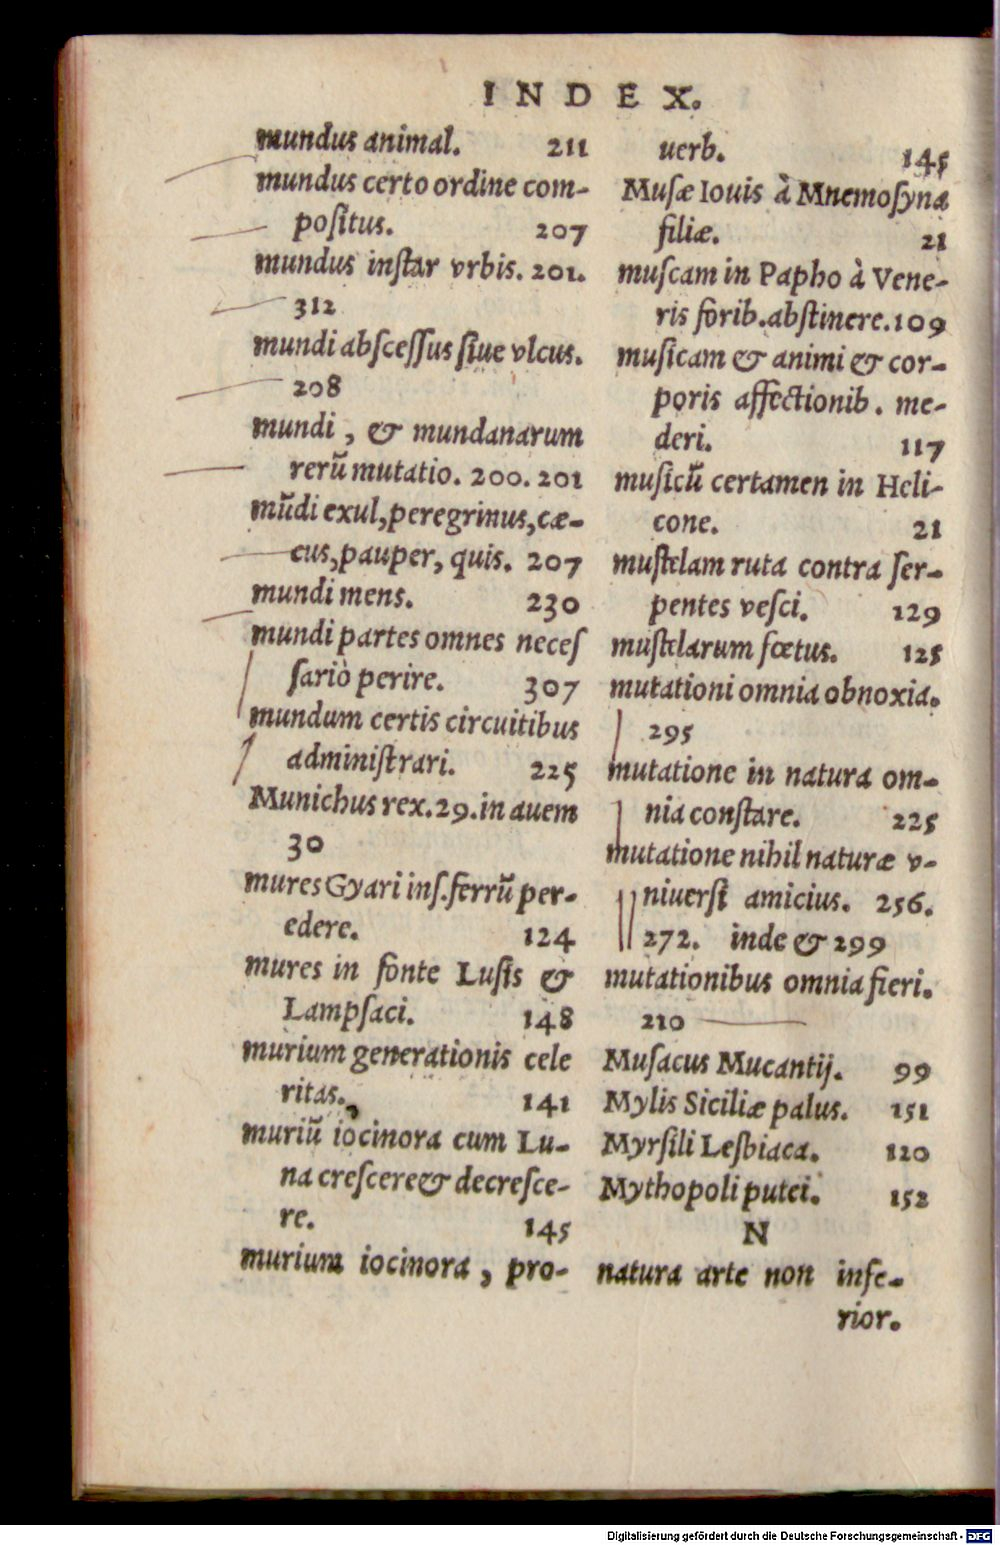 INDEX.
mundus animal. 211
mundus certo ordine com-
positus. 207
mundus instar vrbis. 201.
312
mundi abscessus siue vlcus.
208
mundi, & mundanarum
rerū mutatio. 200. 201
mūdi exul, peregrinus, cæ-
cus, pauper, quis. 207
mundi mens. 230
mundi partes omnes neces
sariò perire. 307
mundum certis circuitibus
administrari. 225
Munichus rex. 29. in auem
30
mures Gyari ins. ferrū per-
edere. 124
mures in fonte Lusis &
Lampsaci. 148
murium generationis cele
ritas. 141
muriū iocinora cum Lu-
na crescere & decresce-
re. 145
murium iocinora, pro-
uerb. 145
Musæ Iouis à Mnemosyna
filiæ. 21
muscam in Papho à Vene-
ris forib. abstinere. 109
musicam & animi & cor-
poris affectionib. me-
deri. 117
musicū certamen in Heli-
cone. 21
mustelam ruta contra ser-
pentes vesci. 129
mustelarum fœtus. 125
mutationi omnia obnoxia.
295
mutatione in natura om-
nia constare. 225
mutatione nihil naturæ v-
niuersi amicius. 256.
272. inde & 299
mutationibus omnia fieri.
210
Musacus Mucantij. 99
Mylis Siciliæ palus. 151
Myrsili Lesbiaca. 120
Mythopoli putei. 152
N
natura arte non infe-
rior.
Digitalisierung gefördert durch die Deutsche Forschungsgemeinschaft - DFG